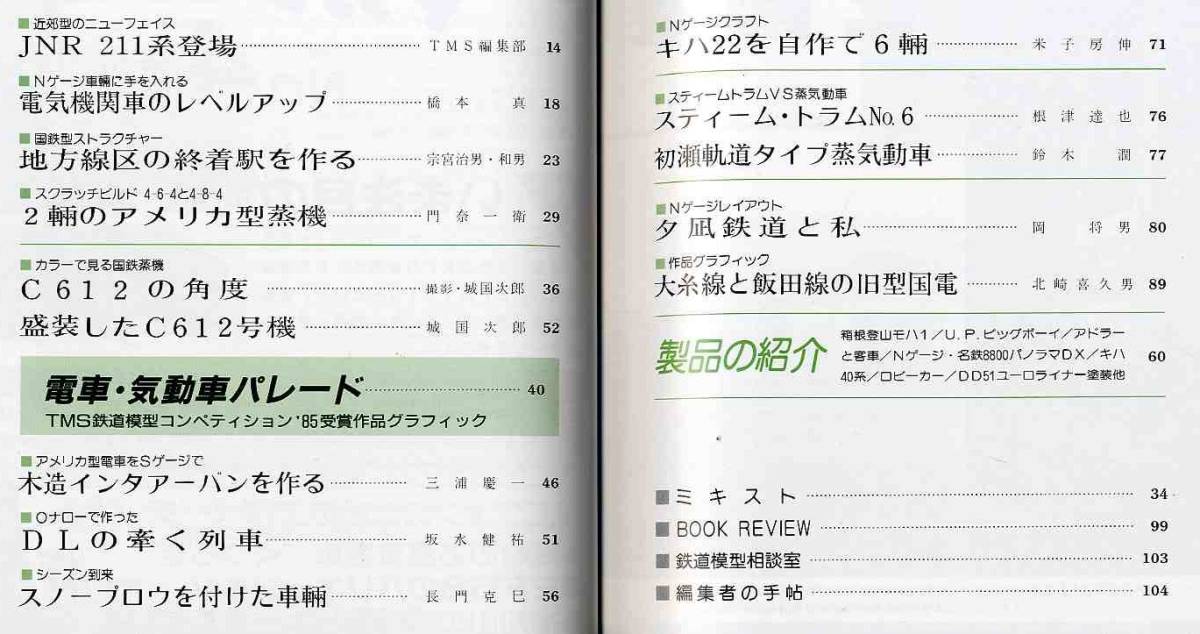 ■近郊型のニューフェイス
JNR 211系登場 TMS編集部 14
■Nゲージ車輛に手を入れる
電気機関車のレベルアップ 橋本真 18
■国鉄型ストラクチャー
地方線区の終着駅を作る 宗宮治男・和男 23
■スクラッチビルド 4-6-4と4-8-4
2輛のアメリカ型蒸機 門奈一衛 29
■カラーで見る国鉄蒸機
C612の角度 撮影・城国次郎 36
盛装したC612号機 城国次郎 52
電車・気動車パレード 40
TMS鉄道模型コンペティション'85受賞作品グラフィック
■アメリカ型電車をSゲージで
木造インタアーバンを作る 三浦慶一 46
■Oナローで作った
DLの牽く列車 坂水健祐 51
■シーズン到来
スノープロウを付けた車輛 長門克巳 56
■Nゲージクラフト
キハ22を自作で6輛 米子房伸 71
■スティームトラムVS蒸気動車
スティーム・トラムNo.6 根津達也 76
初瀬軌道タイプ蒸気動車 鈴木潤 77
■Nゲージレイアウト
夕凪鉄道と私 岡将男 80
■作品グラフィック
大糸線と飯田線の旧型国電 北崎喜久男 89
製品の紹介 60
箱根登山モハ1/U.P.ビッグボーイ/アドラー
と客車/Nゲージ・名鉄8800パノラマDX/キハ
40系/ロビーカー/DD51ユーロライナー塗装他
■ミキスト 34
■BOOK REVIEW 99
■鉄道模型相談室 103
■編集者の手帖 104